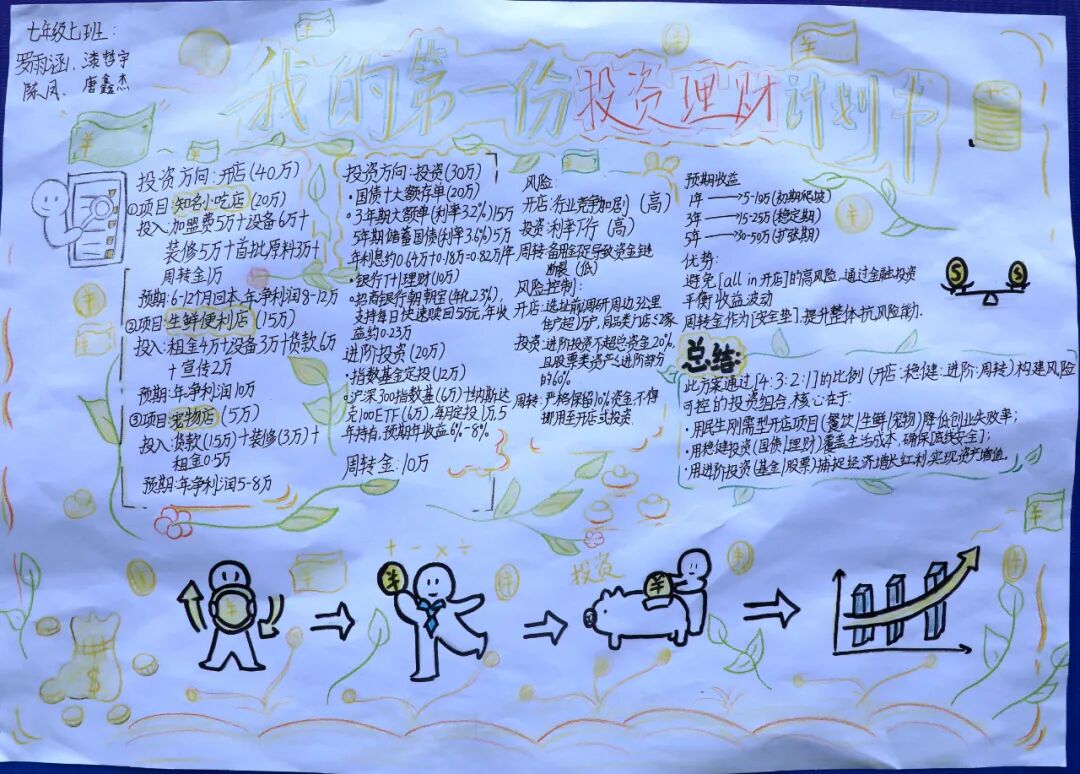 七年级七班:
罗雨涵、漆哲宇
陈凤、唐鑫杰
我的第一份投资理财计划书
投资方向:开店(40万)
①项目:知名小吃店(20万)
投入:加盟费5万+设备6万+
装修5万+首批原料3万+
周转金1万
预期:6-12个月回本,年净利润8-12万
②项目:生鲜便利店(15万)
投入:租金4万+设备3万+货款6万
+宣传2万
预期:年净利润10万
③项目:宠物店(5万)
投入:货款(1.5万)+装修(3万)+
租金0.5万
预期:年净利润5-8万
投资方向:投资(30万)
·国债+大额存单(20万)
·3年期大额单(利率3.2%)15万
5年期储蓄国债(利率3.6%)5万
年利息约0.64万+0.18万=0.82万/年
·银行T+1理财(10万)
·招商银行朝朝宝(年化2.3%),
支持每日快速赎回5万元,年收
益约0.23万
进阶投资(20万)
·指数基金定投(12万)
·沪深300指数基(6万)+纳斯达
克100ETF(6万),每月定投1万,5
年持有,预期年收益6%-8%。
周转金:10万
风险:
开店:行业竞争加剧(高)
投资:利率下行(高)
周转:备用金不足导致资金链
断裂(低)
风险控制:
开店:选址前调研周边3公里
住户超1万户,同品类门店≤2家
投资:进阶投资不超总资金20%,
且股票类资产≤进阶部分
的60%
周转:严格保留10%资金,不得
挪用至开店或投资.
预期收益
1年→5-10万(初期爬坡)
3年→15-25万(稳定期)
5年→30-50万(扩张期)
优势:
避免[all in开店]的高风险,通过金融投资
平衡收益波动
周转金作为[安全垫]提升整体抗风险能力.
总结:
此方案通过[4:3:2:1]的比例(开店:稳健:进阶:周转)构建风险
可控的投资组合,核心在于:
·用民生刚需型开店项目(餐饮|生鲜|宠物)降低创业失败率;
·用稳健投资(国债|理财)覆盖生活成本,确保[底线安全];
·用进阶投资(基金|股票)捕捉经济增长红利,实现资产增值.
+ - × ÷
投资